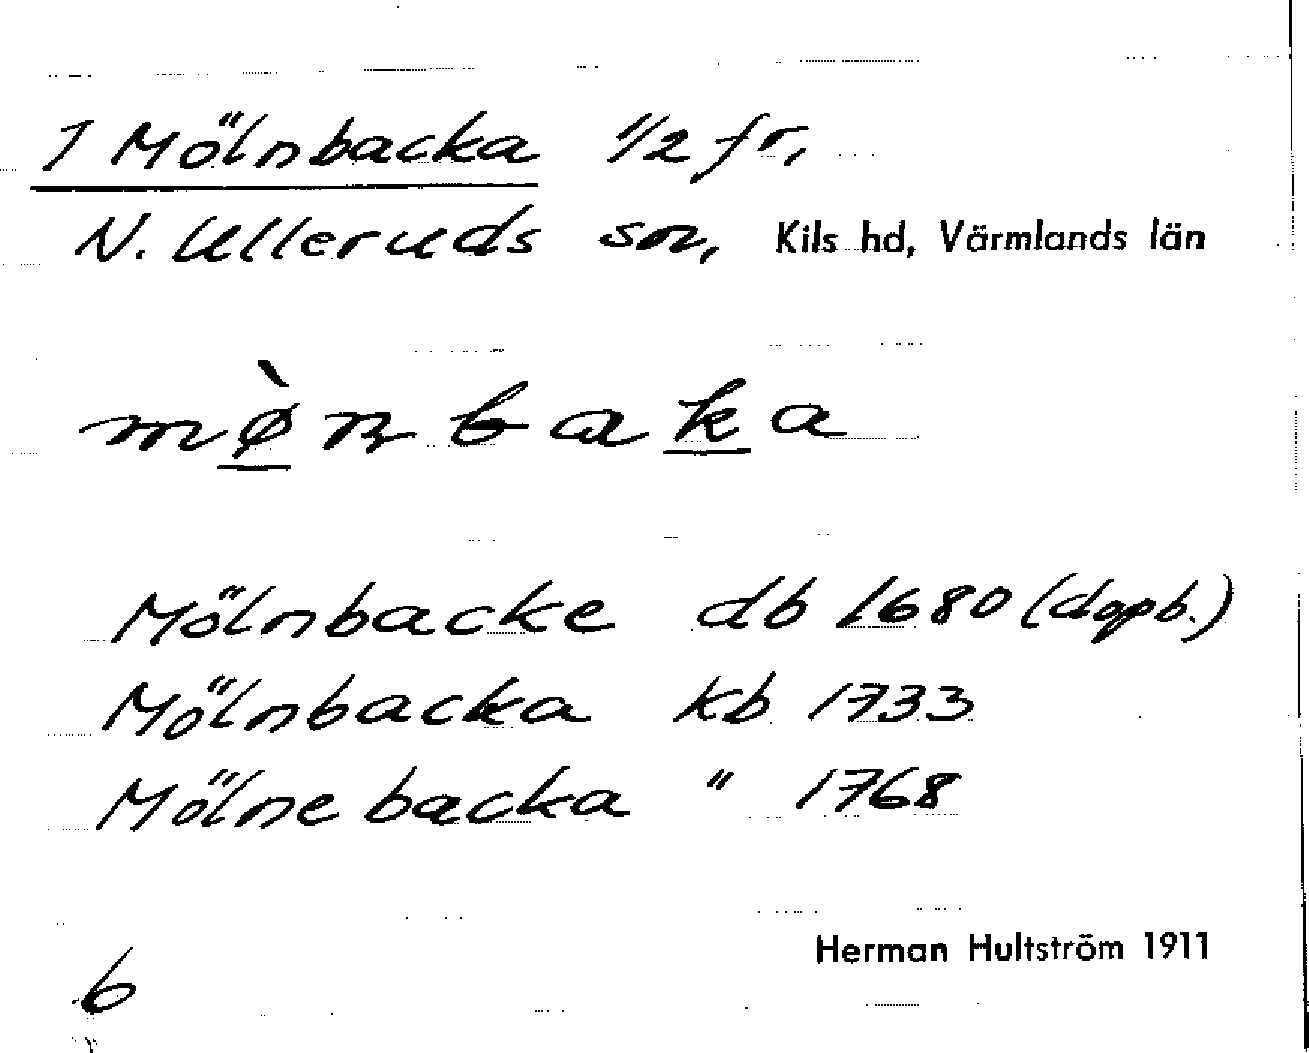 1 Mölnbacka 1/2 fr,
N. Ulleruds sn, Kils hd, Värmlands län
mø̀nbaka
Mölnbacke db 1680 (dopb.)
Mölnbacka kb 1733
Mölnebacka " 1768
Herman Hultström 1911
b